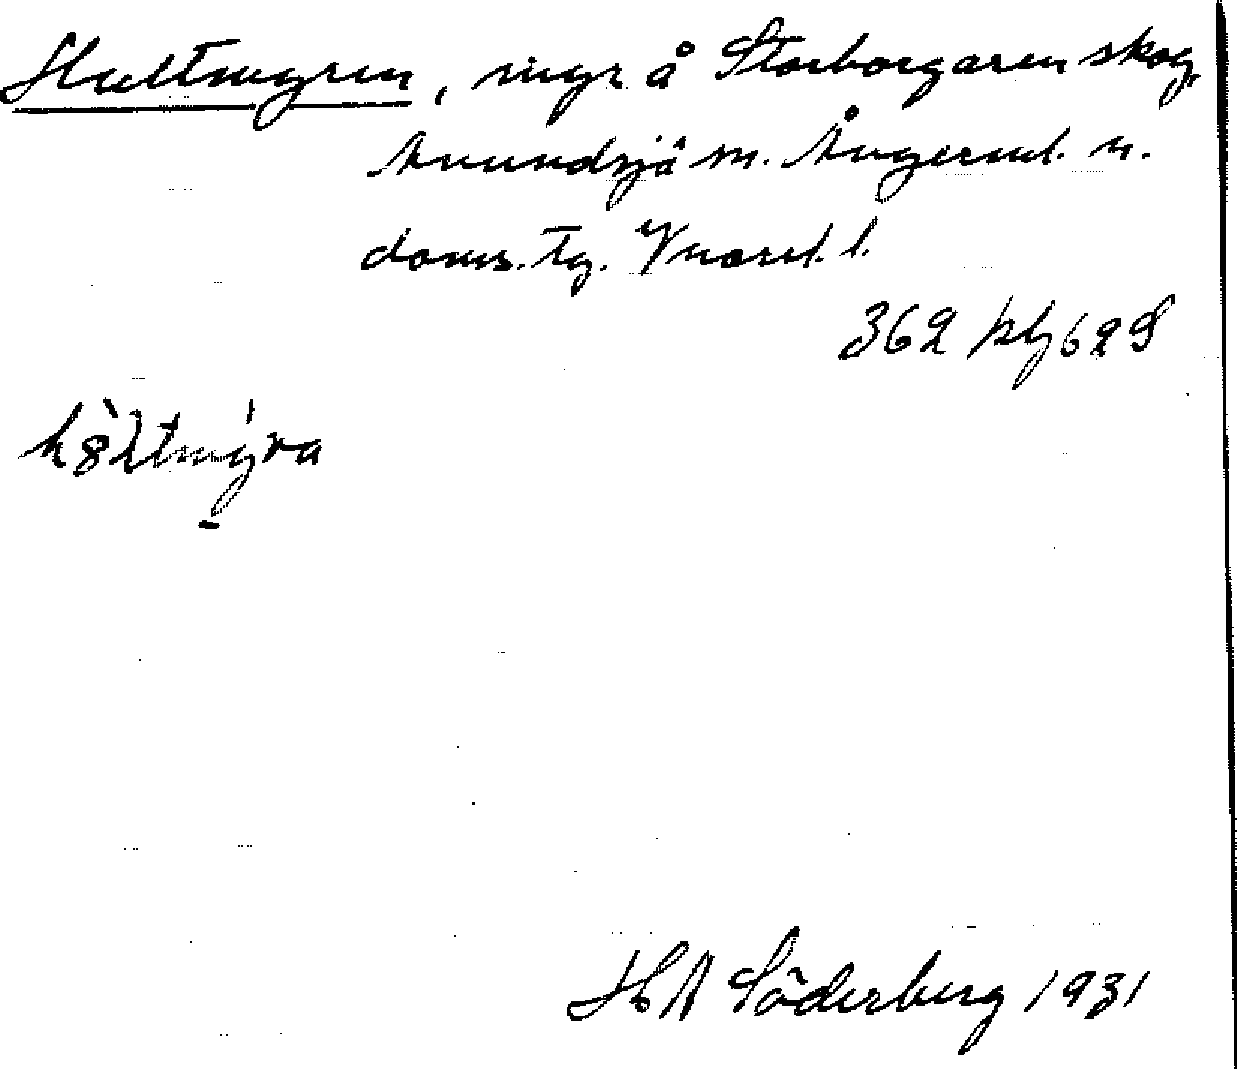 Hultmyren, myr å Storborgaren skog,
Anundsjö sn. Ångerml. n.
doms. tg. Vnorrl. l.
362
hö̀ltmýra
HA Söderberg 1931